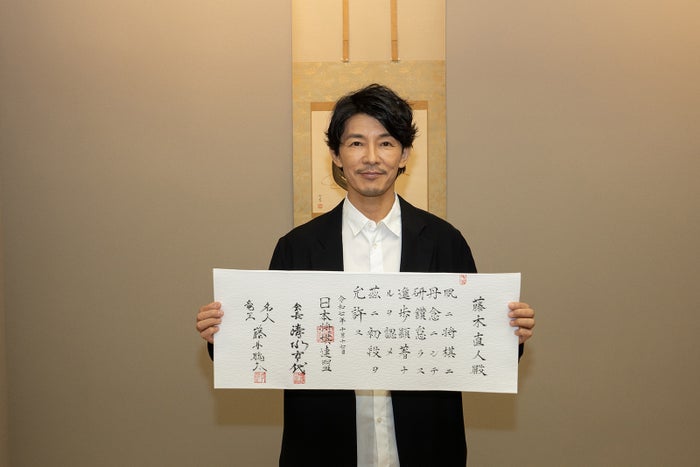 藤木直人殿
夙ニ将棋ニ
丹念ニシテ
研鑽怠ラス
進歩顕著ナ
ルヲ認メ
茲ニ初段ヲ
允許ス
令和七年十月十七日
日本将棋連盟
会長 清水市代
名人
竜王 藤井聡太